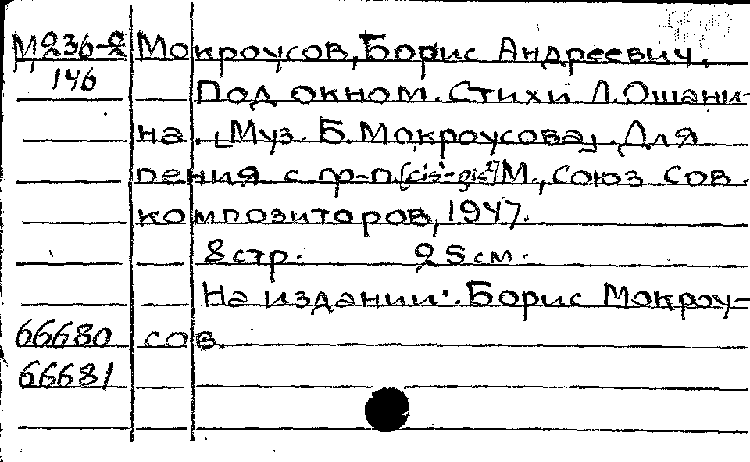 М236-2 Мокроусов, Борис Андреевич.
146 Под окном. Стихи Л. Ошани-
на. [Муз. Б. Мокроусова]. Для
пения с ф-п. М., Союз сов.
композиторов, 1947.
8 стр. 25 см.
На издании: Борис Мокроу-
66680 сов.
66681